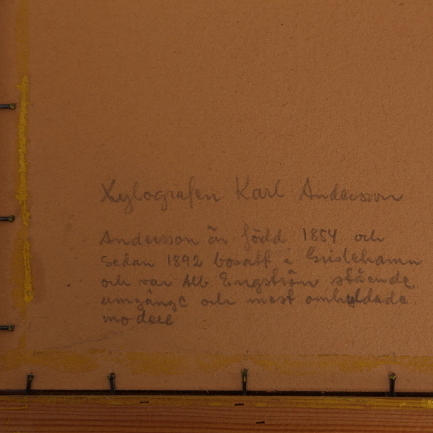 Xylografen Karl Andersson
Andersson är född 1864 och
sedan 1892 bosatt i Grislehamn
och var Alb Engström stående
umgänge och mest omhuldade
modell